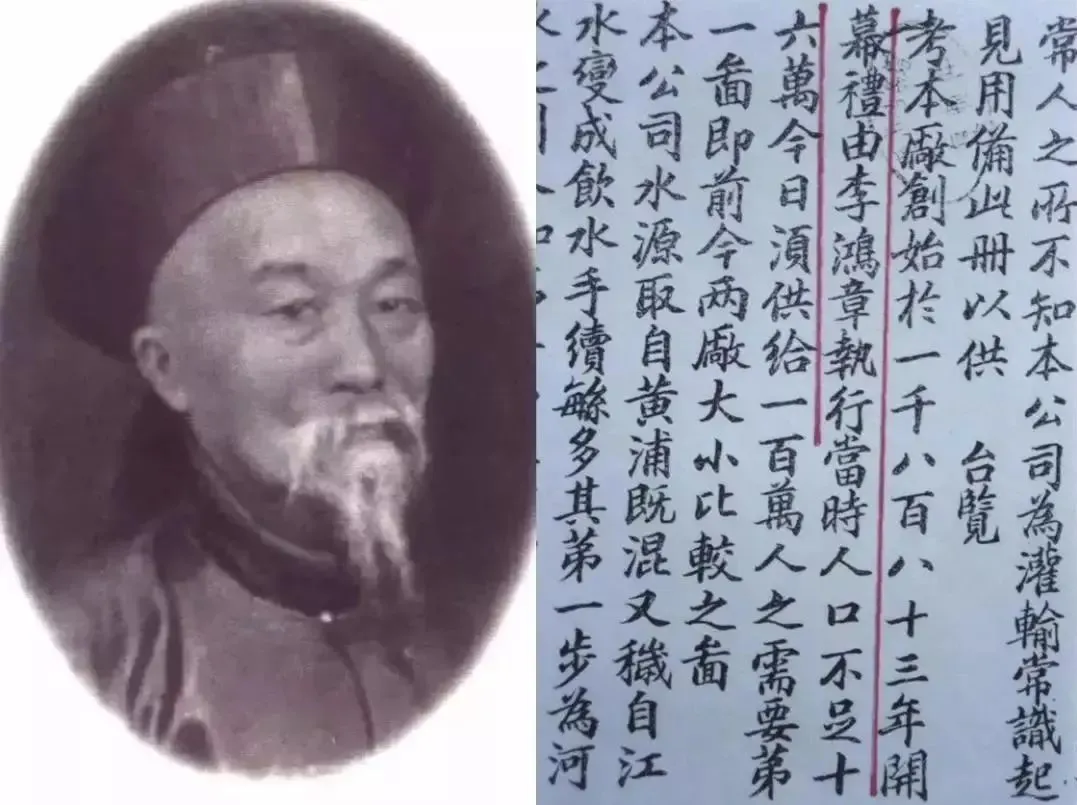 常人之所不知本公司為灌輸常識起
見用備此冊以供 台覽
考本廠創始於一千八百八十三年開
幕禮由李鴻章執行當時人口不足十
六萬今日湏供給一百萬人之需要弟
一啚即前今两廠大小比較之啚
本公司水源取自黄浦既混又穢自江
水變成飲水手續緐多其弟一步為河